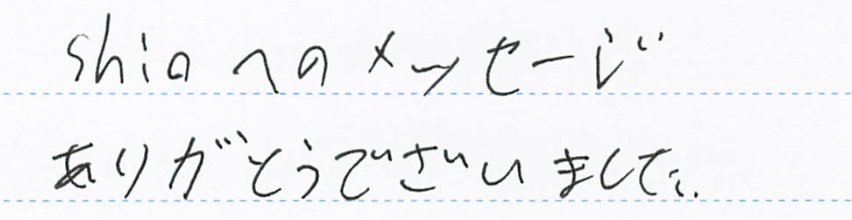 shioへのメッセージ
ありがとうでざいました。